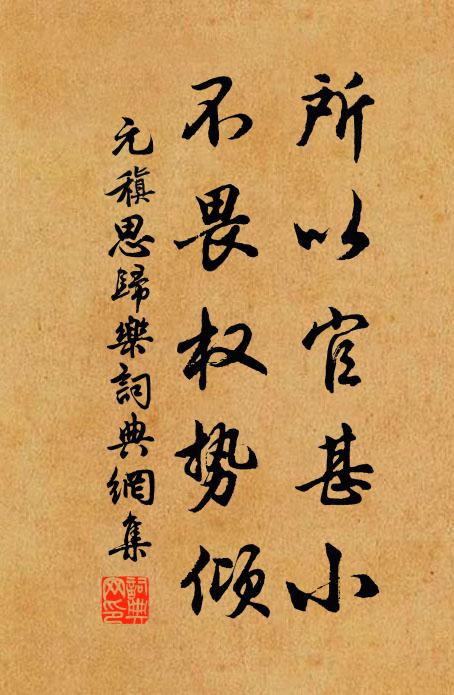 所以官甚小
不畏权势倾
元稹思歸樂詞典網集
詞典網印